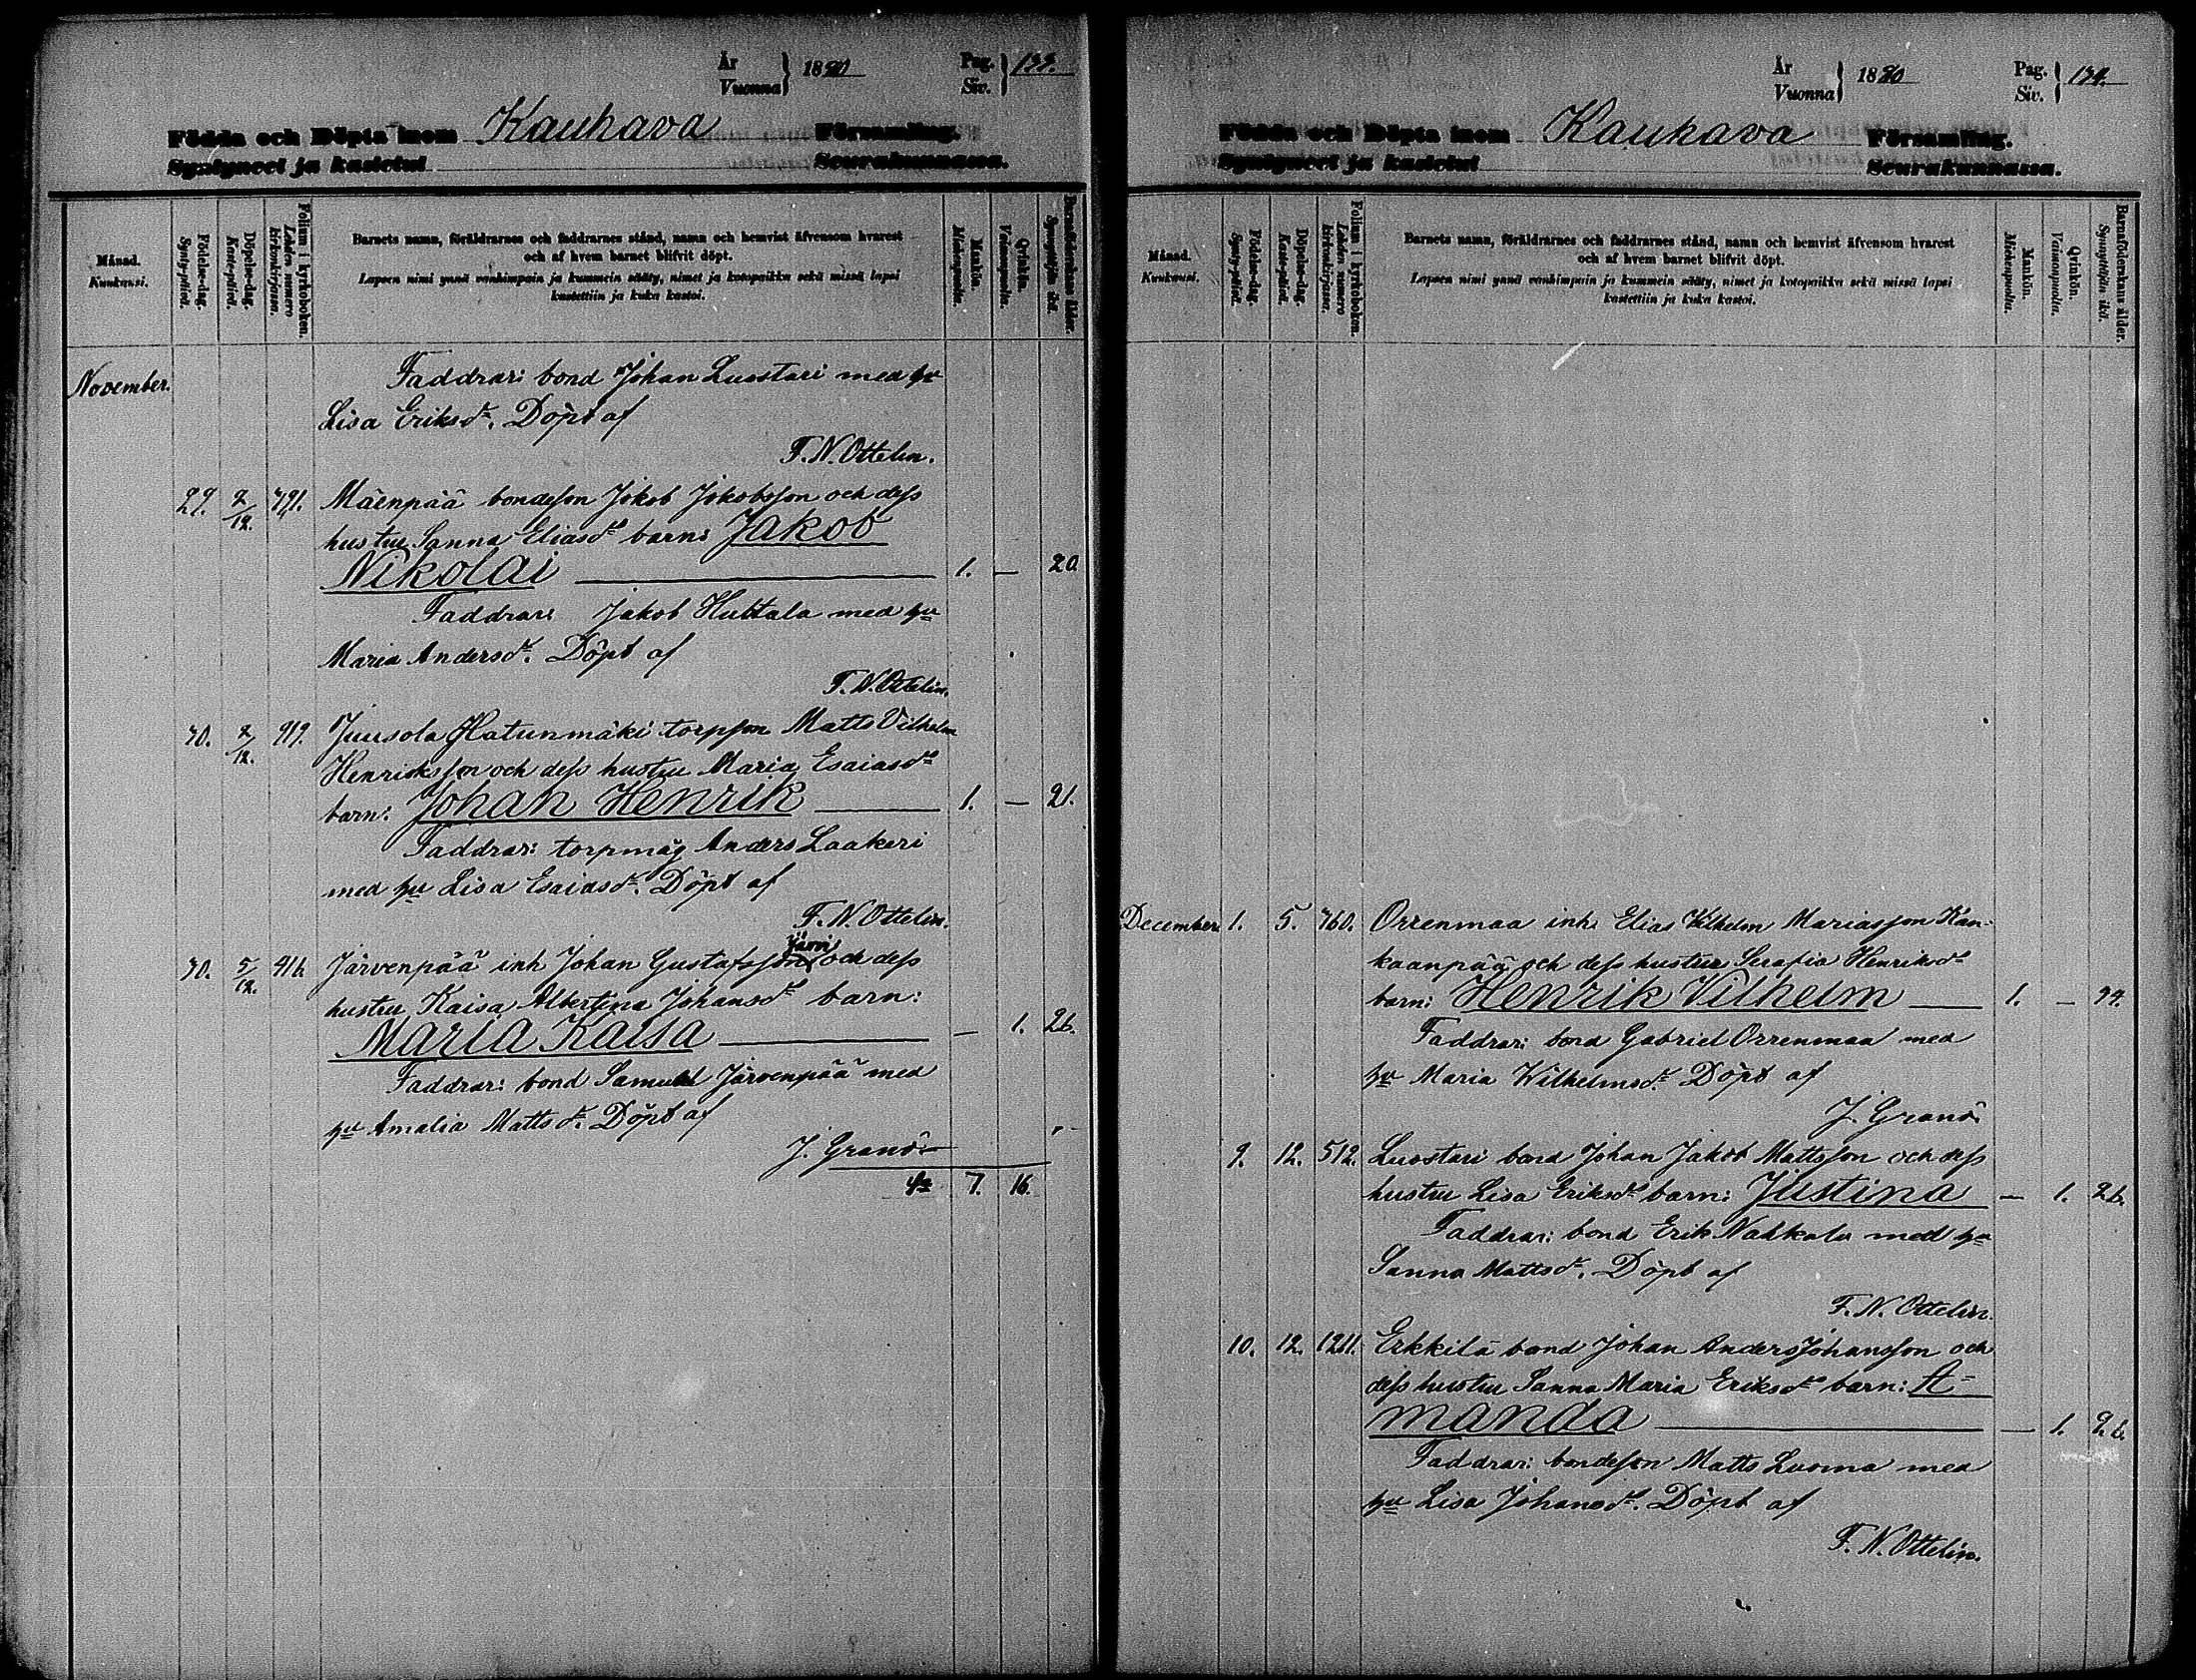 År
Vuonna } 1880
Pag.
Siv. } 133.
Födda och Döpta inom Kauhava Församling.
Syntyneet ja kastetut Seurakunnassa.
Månad.
Kuukausi.
Födelse-dag.
Synty-päivä.
Döpelse-dag.
Kaste-päivä.
Folium i kyrkoboken.
Lehden numero kirkonkirjassa.
Barnets namn, föräldrarnes och faddrarnes stånd, namn och hemvist äfvensom hvarest
och af hvem barnet blifvit döpt.
Lapsen nimi ynnä vanhimpain ja kummein sääty, nimet ja kotopaikka sekä missä lapsi
kastettiin ja kuka kastoi.
Mankön.
Miehenpuolta.
Qvinkön.
Vaimonpuolta.
Barnaföderskans ålder.
Synnyttäjän ikä.
November. Faddrar: bond Johan Luostari med hu
Lisa Eriksdr. Döpt af
F. N. Ottelin.
29. 2/12. 791. Mäenpää bondeson Jakob Jakobsson och dess
hustru Sanna Eliasdr barn: Jakob
Nikolai 1. — 20
Faddrar: Jakob Huhtala med hu
Maria Andersdr. Döpt af
F. N. Ottelin.
30. 2/12. 919. Juusola Hatunmäki torpson Matts Vilhelm
Henriksson och dess hustru Maria Esaiasdr
barn: Johan Henrik 1. — 21.
Faddrar: torpmåg Anders Laakeri
med hu Lisa Esaiasdr. Döpt af
F. N. Ottelin.
Järvi
30. 5/12. 416. Järvenpää inh Johan Gustafsson och dess
hustru Kaisa Albertina Johansdr barn:
Maria Kaisa — 1. 26.
Faddrar: bond Samuel Järvenpää med
hu Amalia Mattsdr. Döpt af
J. Granö
Sa 7. 16.
År
Vuonna } 1880
Pag.
Siv. } 134.
Födda och Döpta inom Kauhava Församling.
Syntyneet ja kastetut Seurakunnassa.
Månad.
Kuukausi.
Födelse-dag.
Synty-päivä.
Döpelse-dag.
Kaste-päivä.
Folium i kyrkoboken.
Lehden numero kirkonkirjassa.
Barnets namn, föräldrarnes och faddrarnes stånd, namn och hemvist äfvensom hvarest
och af hvem barnet blifvit döpt.
Lapsen nimi ynnä vanhimpain ja kummein sääty, nimet ja kotopaikka sekä missä lapsi
kastettiin ja kuka kastoi.
Mankön.
Miehenpuolta.
Qvinkön.
Vaimonpuolta.
Barnaföderskans ålder.
Synnyttäjän ikä.
December. 1. 5. 760. Orrenmaa inh. Elias Vilhelm Mariasson Kan-
kaanpää och dess hustru Serafia Henriksdr
barn: Henrik Vilhelm 1. — 34.
Faddrar: bond Gabriel Orrenmaa med
hu Maria Wilhelmsdr. Döpt af
J. Granö
9. 12. 512. Luostari bond Johan Jakob Mattsson och dess
hustru Lisa Eriksdr barn: Justina — 1. 26.
Faddrar: bond Erik Nahkala med hu
Sanna Mattsdr. Döpt af
F. N. Ottelin.
10. 12. 1261. Erkkilä bond Johan Anders Johansson och
dess hustru Sanna Maria Eriksdr barn: A-
manda — 1. 26.
Faddrar: bondeson Matts Luoma med
hu Lisa Johansdr. Döpt af
F. N. Ottelin.